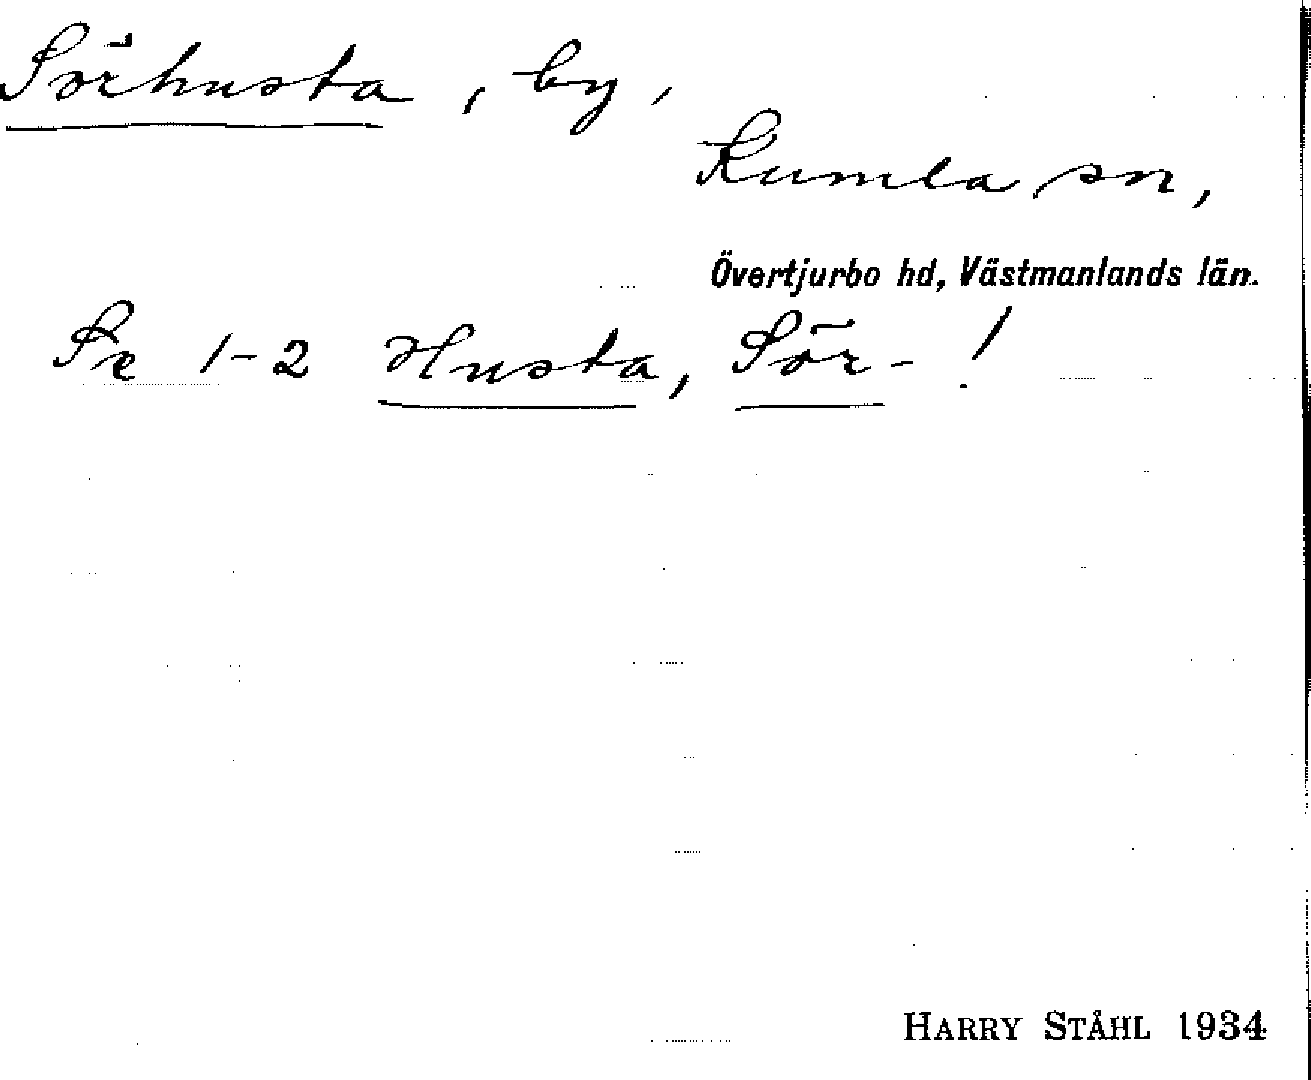 Sörhusta, by,
Kumla sn,
Övertjurbo hd, Västmanlands län.
Se 1-2 Husta, Sör- !
HARRY STÅHL 1934